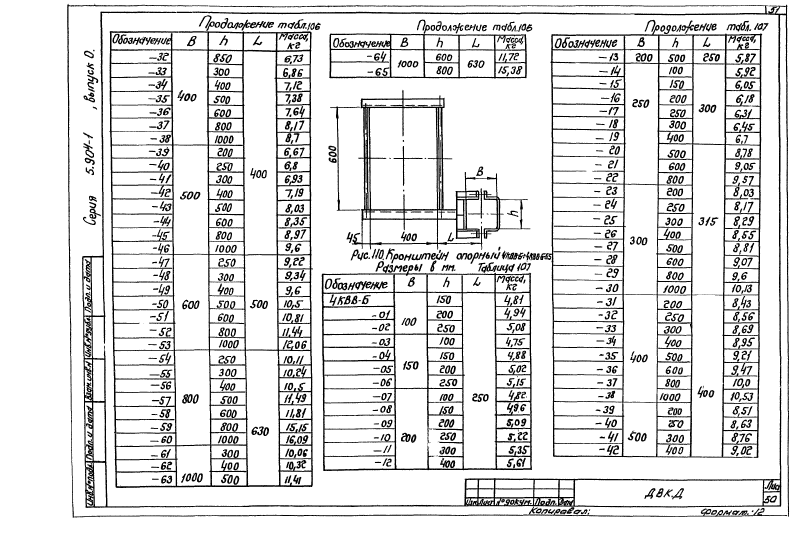 51
Серия 5.904-1, выпуск 0.
Продолжение табл.106
Обозначение B h L Масса, кг
-32 400 850 400 6,73
-33 300 6,86
-34 400 7,12
-35 500 7,38
-36 600 7,64
-37 800 8,17
-38 1000 8,7
-39 500 200 6,67
-40 250 6,8
-41 300 6,93
-42 400 7,19
-43 500 8,03
-44 600 8,35
-45 800 8,97
-46 1000 9,6
-47 600 250 500 9,22
-48 300 9,34
-49 400 9,6
-50 500 10,5
-51 600 10,81
-52 800 11,44
-53 1000 12,06
-54 800 250 630 10,11
-55 300 10,24
-56 400 10,5
-57 500 11,49
-58 600 11,81
-59 800 15,15
-60 1000 16,09
-61 1000 300 10,06
-62 400 10,32
-63 500 11,41
Продолжение табл.106
Обозначение B h L Масса, кг
-64 1000 600 630 11,72
-65 800 15,38
600
B
h
45 400 L
Рис.110. Кронштейн опорный
Размеры в мм. Таблица 107
Обозначение B h L Масса, кг
4КВВ-Б 100 150 250 4,81
-01 200 4,94
-02 250 5,08
-03 150 100 4,75
-04 150 4,88
-05 200 5,02
-06 250 5,15
-07 200 100 4,82
-08 150 4,96
-09 200 5,09
-10 250 5,22
-11 300 5,35
-12 400 5,61
Продолжение табл.107
Обозначение B h L Масса, кг
-13 200 500 250 5,87
-14 250 100 300 5,92
-15 150 6,05
-16 200 6,18
-17 250 6,31
-18 300 6,45
-19 400 6,7
-20 500 315 8,78
-21 600 9,05
-22 800 9,57
-23 300 200 8,03
-24 250 8,17
-25 300 8,29
-26 400 8,55
-27 500 8,81
-28 600 9,07
-29 800 9,6
-30 1000 10,13
-31 400 200 400 8,43
-32 250 8,56
-33 300 8,69
-34 400 8,95
-35 500 9,21
-36 600 9,47
-37 800 10,0
-38 1000 10,53
-39 500 200 8,51
-40 250 8,63
-41 300 8,76
-42 400 9,02
Инв.№подл. Подп. и дата Взам.инв.№ Инв.№дубл. Подп. и дата
Изм. Лист №докум. Подп. Дата
ДВКД
Лист
50
Копировал: Формат 12